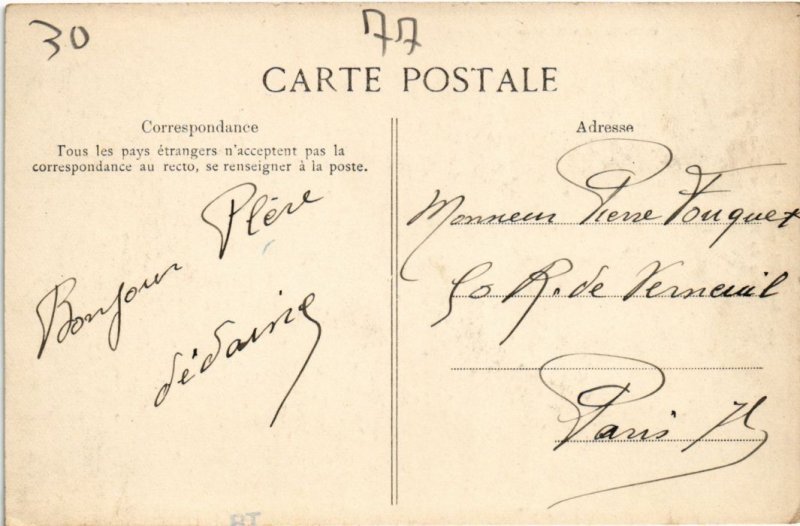 30
77
CARTE POSTALE
Correspondance
Tous les pays étrangers n'acceptent pas la
correspondance au recto, se renseigner à la poste.
Bonjour
Adresse
Monsieur Pierre Fouquet
50 R. de Verneuil
Paris 7